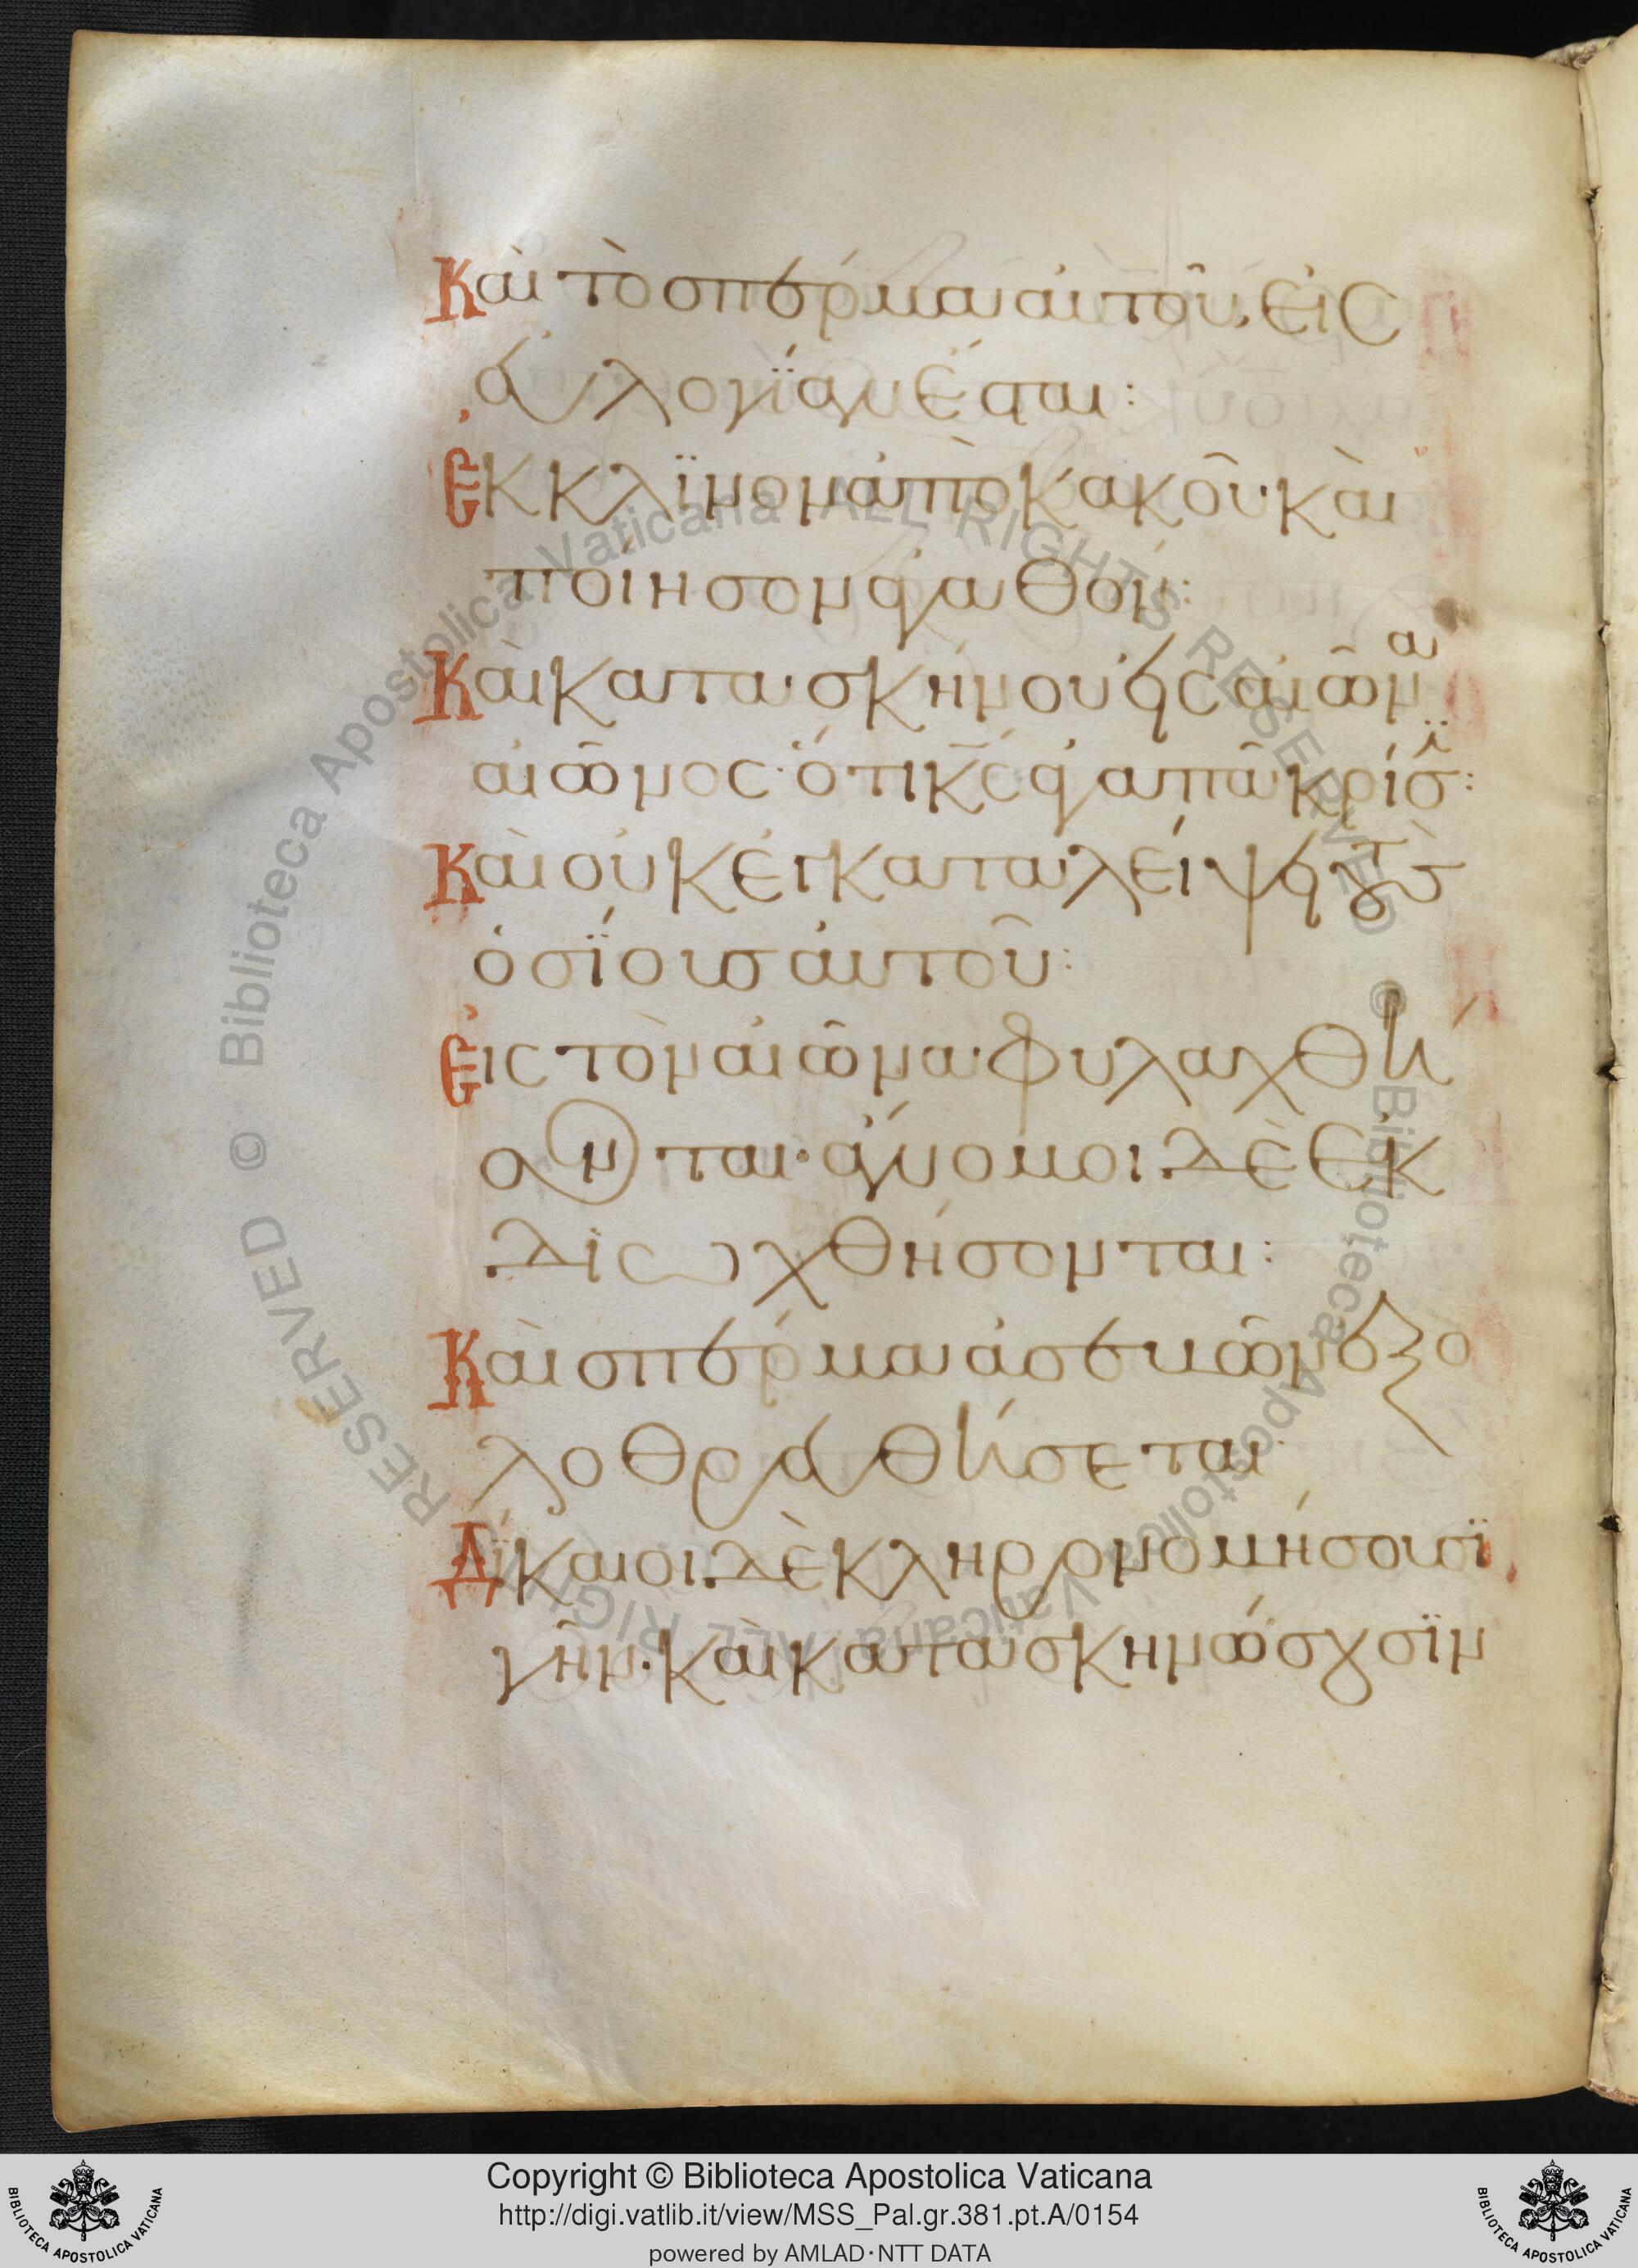 Καὶ τὸ σπέρμα αὐτοῦ, εἰς
εὐλογίαν ἔσται:
Ἔκκλϊνον ἀπὸ κακοῦ· καὶ
ποίησον ἀγαθόν:
Καὶ κατασκήνου εἰς αἰῶνα
αἰῶνος· ὅτι κ̅ς̅ ἀγαπᾶ κρίσϊ:
Καὶ οὐκ ἐγκαταλείψει τοὺς
ὁσίους αὐτοῦ:
Εἰς τὸν αἰῶνα φυλαχθή
σονται· ἄνομοι δὲ ἐκ
διωχθήσονται:
Καὶ σπέρμα ἀσεβῶν ἐξο
λοθρευθήσεται·
Δίκαιοι δὲ κληρονομήσουσϊ
γῆν· καὶ κατασκηνώσουσϊν
Copyright © Biblioteca Apostolica Vaticana
http://digi.vatlib.it/view/MSS_Pal.gr.381.pt.A/0154
powered by AMLAD·NTT DATA
BIBLIOTECA APOSTOLICA VATICANA
BIBLIOTECA APOSTOLICA VATICANA
© Biblioteca Apostolica Vaticana ALL RIGHTS RESERVED
© Biblioteca Apostolica Vaticana ALL RIGHTS RESERVED